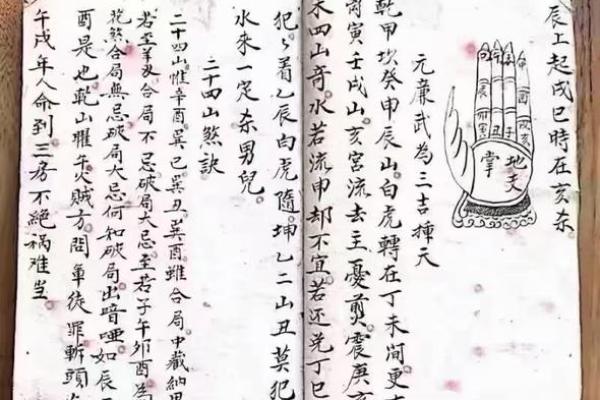 辰上起戌巳時在亥奈
地支掌
元廉武為三吉揷天
乾甲坎癸申辰山白虎轉在丁未澗更
寅壬戌山亥宮流去主憂煎震庚亥
木四山奇水若流申却不宜若还羌丁巳
犯々着乙辰向虎隨坤乙二山丑莫犯
水來一定奈男兒
二十四山煞訣
二十四山惟辛酉巽巳巽丑巽酉雖合局中藏納
若至羊刄合局不忌破局大忌至若子午卯酉為
花煞合局無忌破局大忌何如破局出喑啞如辰
酉是也乾山雅午火賊方問軍徒罪斬頭
午戌年人命到三房不絕祸难当